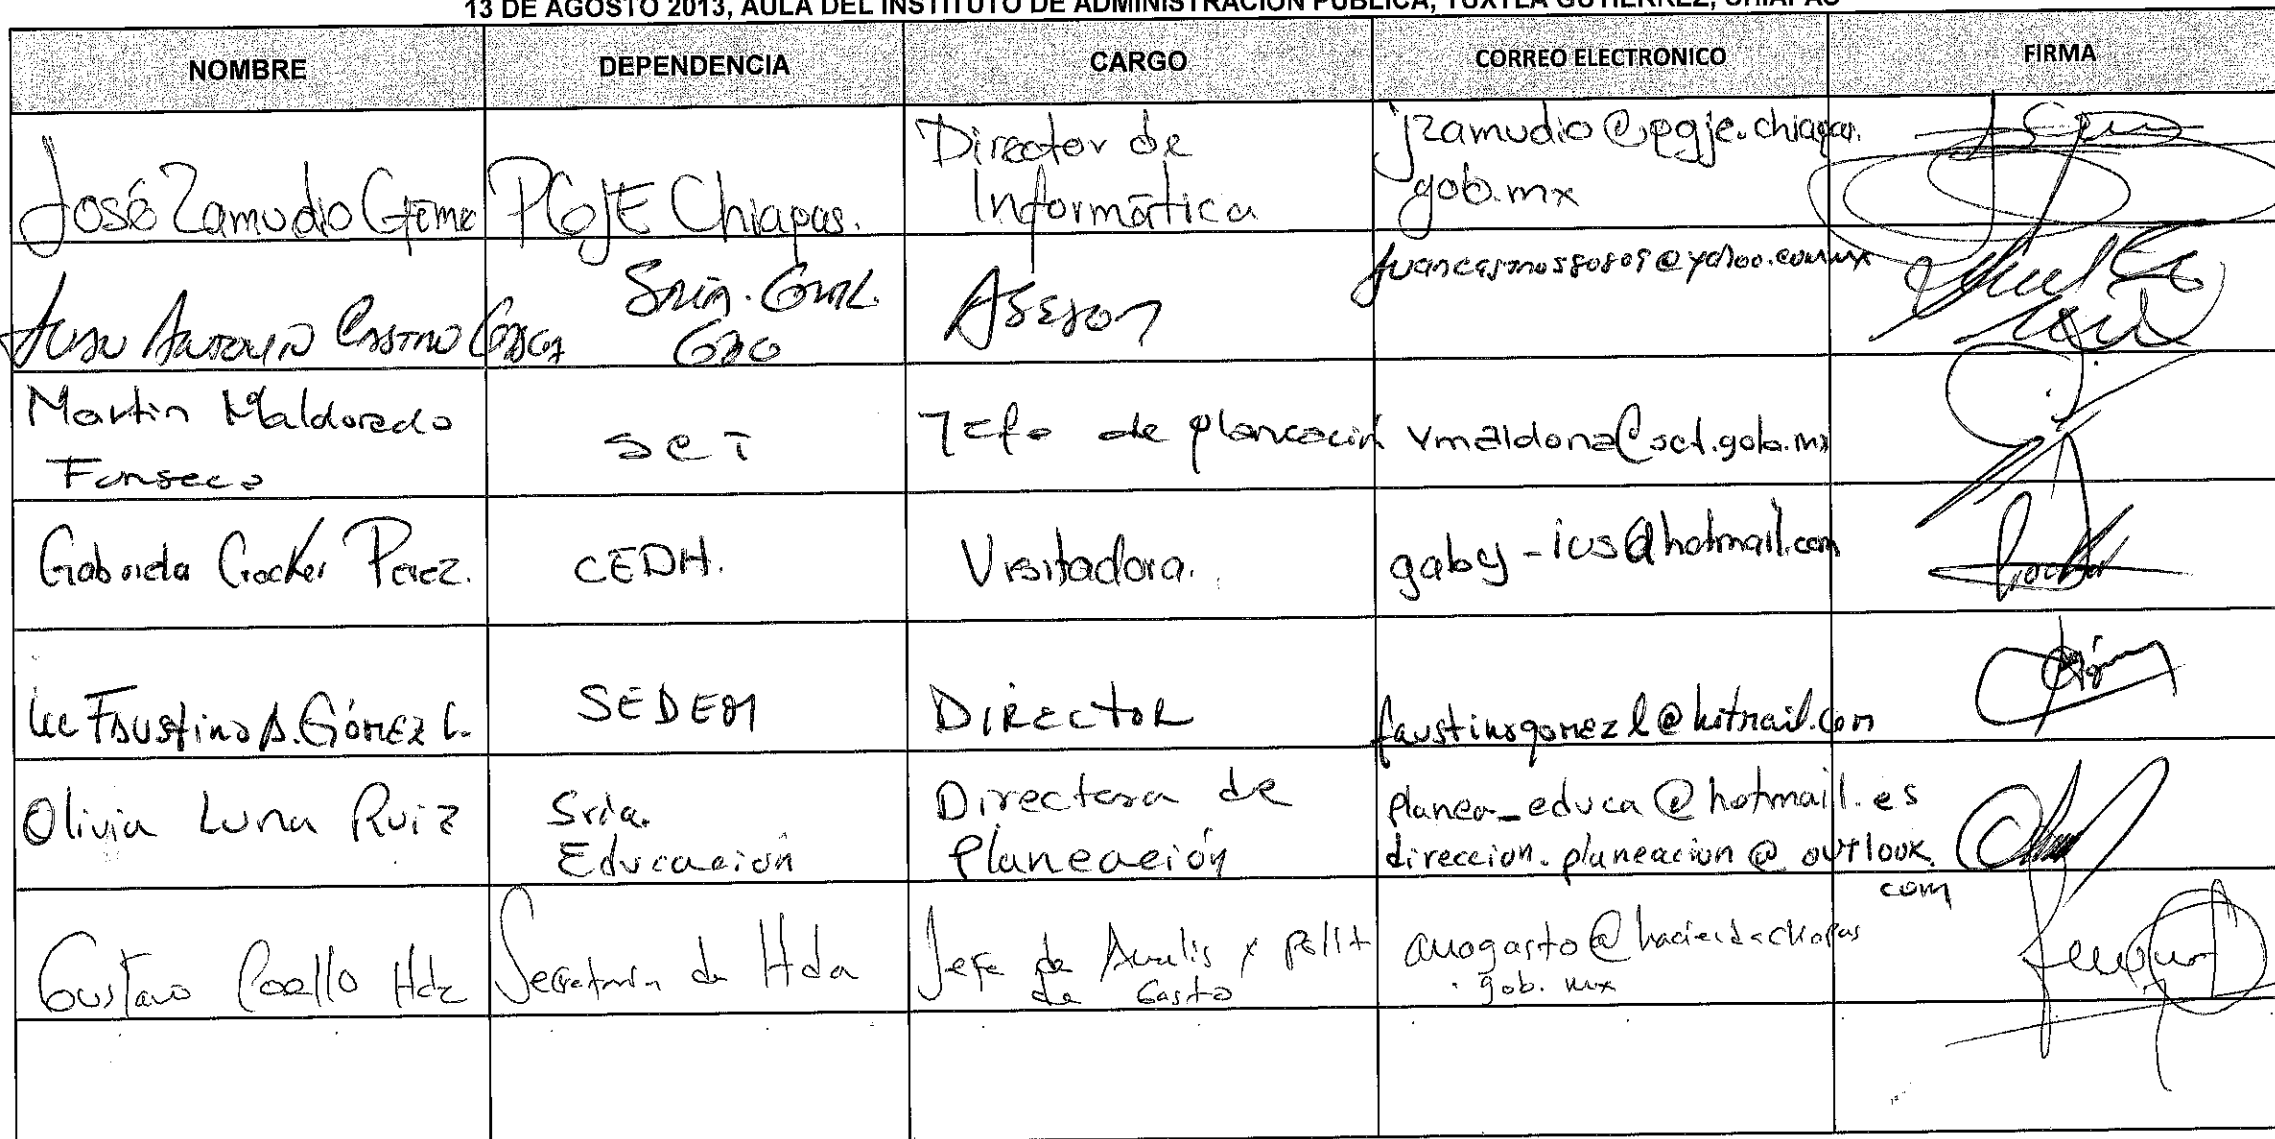 13 DE AGOSTO 2013, AULA DEL INSTITUTO DE ADMINISTRACIÓN PÚBLICA, TUXTLA GUTIÉRREZ, CHIAPAS
NOMBRE DEPENDENCIA CARGO CORREO ELECTRONICO FIRMA
José Zamudio PGJE Chiapas. Director de Informática jzamudio@pgje.chiapas.
gob.mx
Juan Antonio Castro Sría. Gral. Asesor
Gbo
Martin Maldonado
Fonseca
SCT Jefe de planeación vmaldona@sct.gob.mx
Gabriela Crocker Perez. CEDH. Visitadora. gaby-ius@hotmail.com
Lic Faustino A. Gómez L. SEDEM DIRECTOR faustinogomezl@hotmail.com
Olivia Luna Ruiz Sria.
Educación
Directora de
Planeación
planea_educa@hotmail.es
direccion.planeacion@outlook.
com
Gustavo Coello Hdz Secretaria de Hda Jefe de Analis y polit
de Gasto
@haciendachiapas
.gob.mx